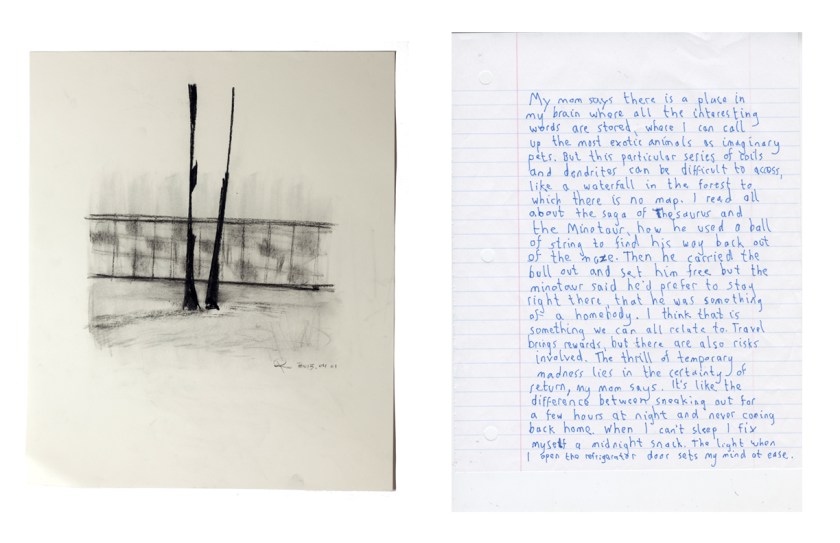 My mom says there is a place in
my brain where all the interesting
words are stored, where I can call
up the most exotic animals as imaginary
pets. But this particular series of coils
and dendrites can be difficult to access,
like a waterfall in the forest to
which there is no map. I read all
about the saga of Thesaurus and
the Minotaur, how he used a ball
of string to find his way back out
of the maze. Then he carried the
bull out and set him free but the
minotaur said he'd prefer to stay
right there, that he was something
of a homebody. I think that is
something we can all relate to. Travel
brings rewards, but there are also risks
involved. The thrill of temporary
madness lies in the certainty of
return, my mom says. It's like the
difference between sneaking out for
a few hours at night and never coming
back home. When I can't sleep I fix
myself a midnight snack. The light when
I open the refrigerator door sets my mind at ease.